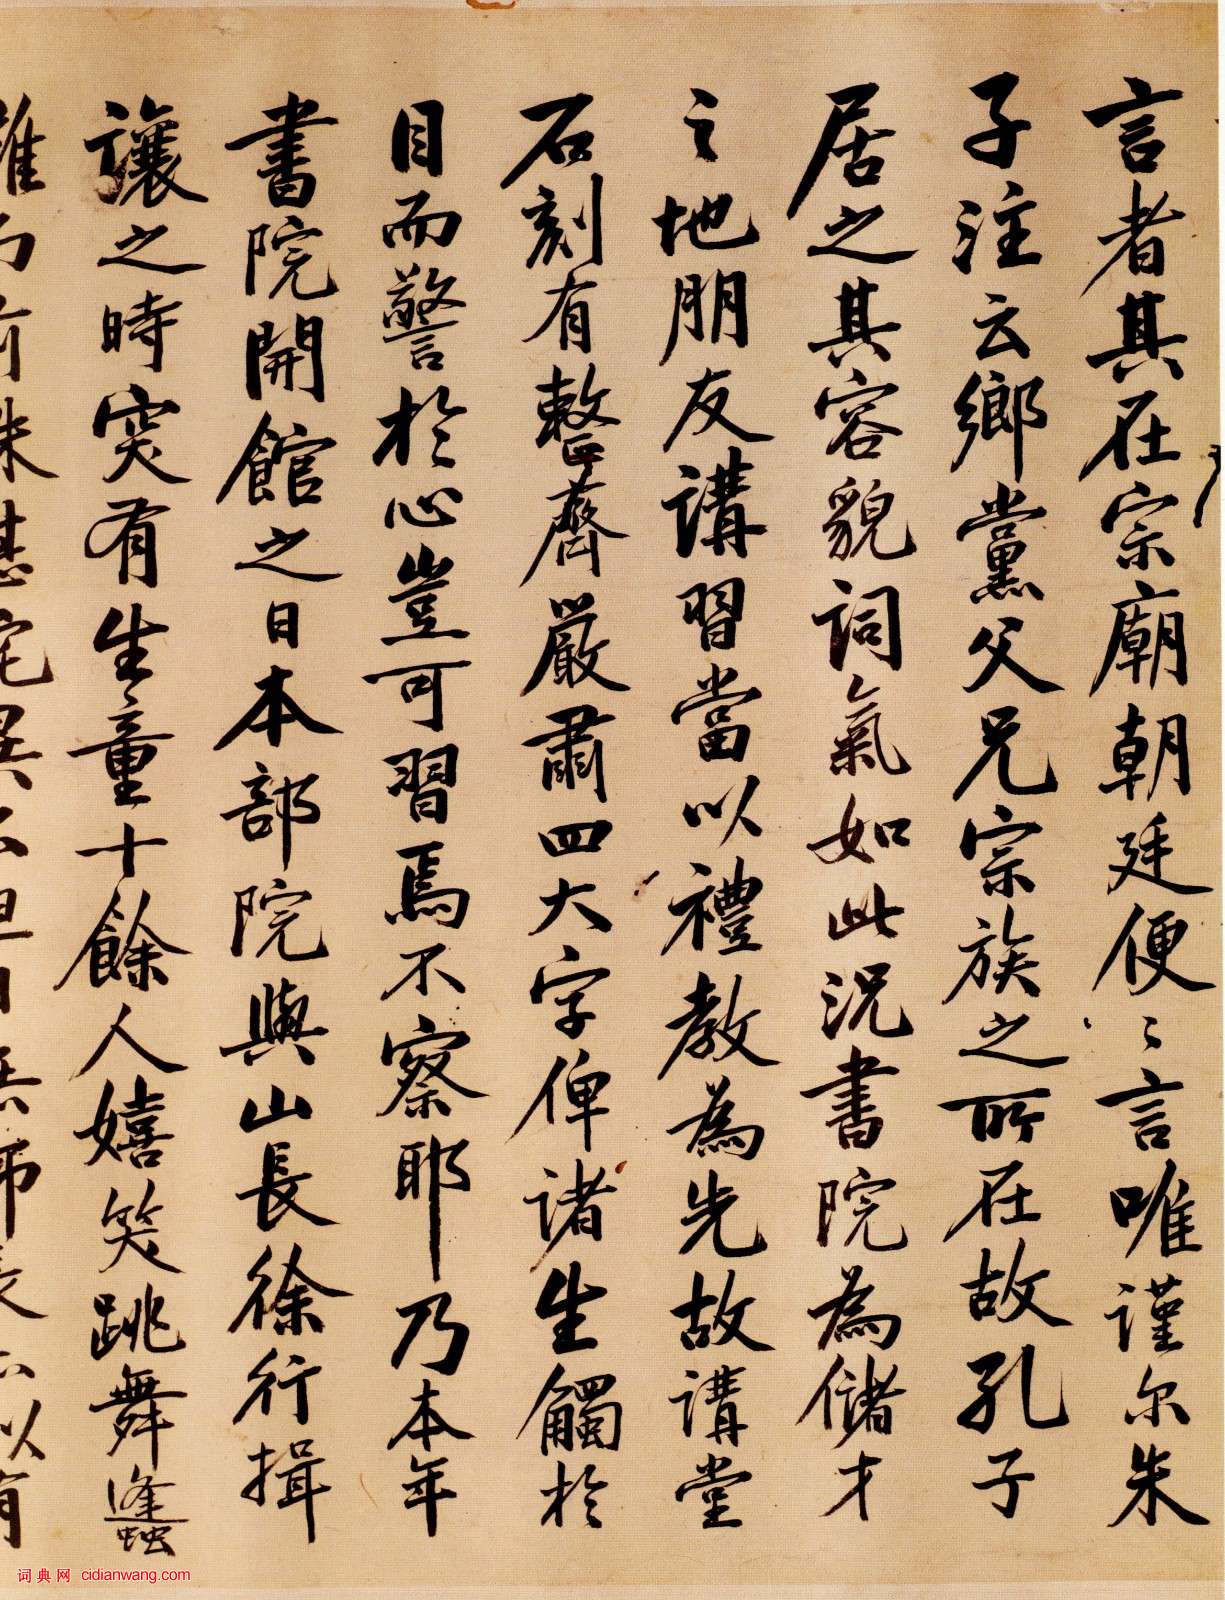 言者其在宗廟朝廷便〻言唯謹尔朱
子注云鄉黨父兄宗族之所在故孔子
居之其容貌詞氣如此況書院為儲才
之地朋友講習當以禮教為先故講堂
石刻有整齊嚴肅四大字俾諸生觸於
目而警於心豈可習焉不察耶乃本年
書院開館之日本部院與山長徐行揖
讓之時突有生童十餘人嬉笑跳舞蠭
詞典网 cidianwang.com